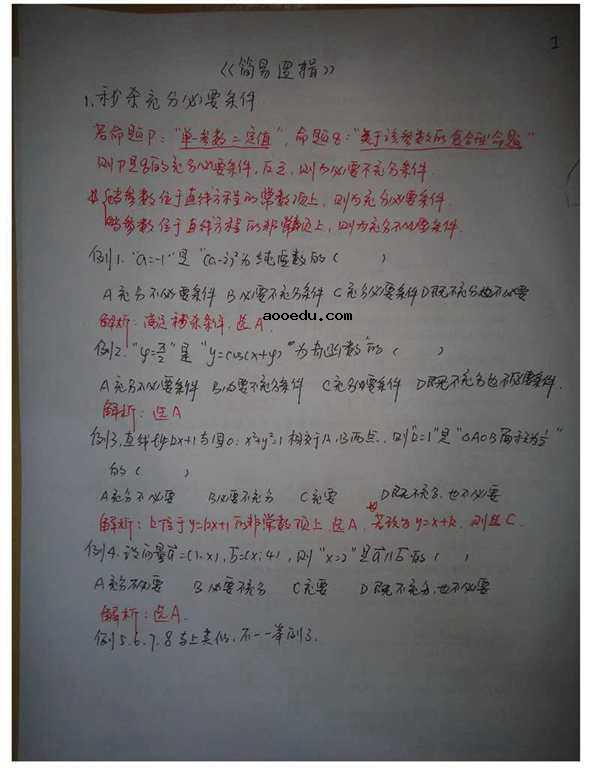 1
《简易逻辑》
1.秒杀充分必要条件
若命题P:"单参数=定值",命题q:"关于该参数的复合型命题"
则P是q的充分不必要条件,反之,则为必要不充分条件.
当参数位于直线方程的常数项上,则为充分必要条件.
当参数位于直线方程的非常数项上,则为充分不必要条件.
例1."a=-1"是"(a-i)²为纯虚数的( )
A充分不必要条件 B必要不充分条件 C充分必要条件 D既不充分也不必要
aooedu.com
解析:满足秒杀条件.选A.
例2."φ=π/2"是"y=cos(x+φ)"为奇函数"的( )
A充分不必要条件 B必要不充分条件 C充分必要条件 D既不充分也不必要条件.
解析:选A
例3.直线l:y=kx+1与圆O:x²+y²=1相交于A、B两点,则"k=1"是"△AOB面积为1/2"
的( )
A充分不必要 B必要不充分 C充要 D既不充分,也不必要
解析:k位于y=kx+1的非常数项上,选A.若改为y=x+k.则选C.
例4.设向量a=(1,x),b=(x,4),则"x=2"是a∥b的( )
A充分不必要 B必要不充分 C充要 D既不充分,也不必要
解析:选A.
例5.6.7.8与上类似,不一一举例了.